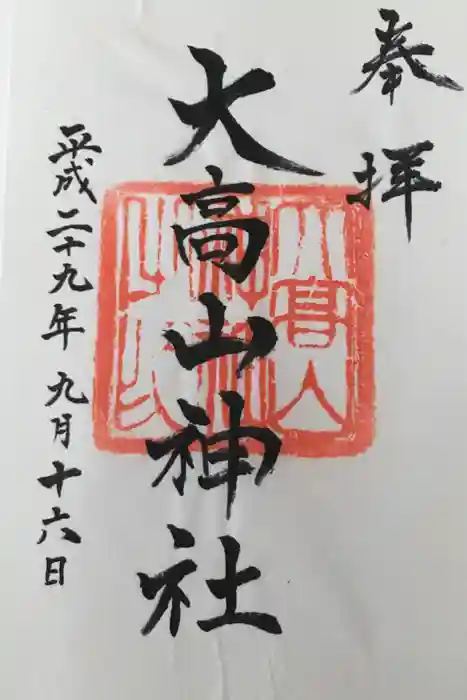 奉拝
大高山神社
平成二十九年九月十六日